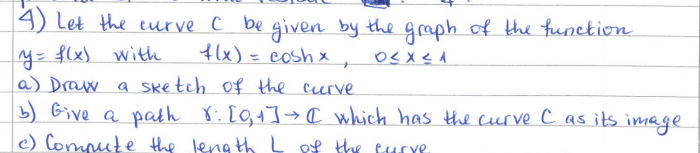 4) Let the curve C be given by the graph of the function
y = f(x) with f(x) = cosh x , 0 ≤ x ≤ 1
a) Draw a sketch of the curve
b) Give a path γ: [0,1] → ℂ which has the curve C as its image
c) Compute the length L of the curve